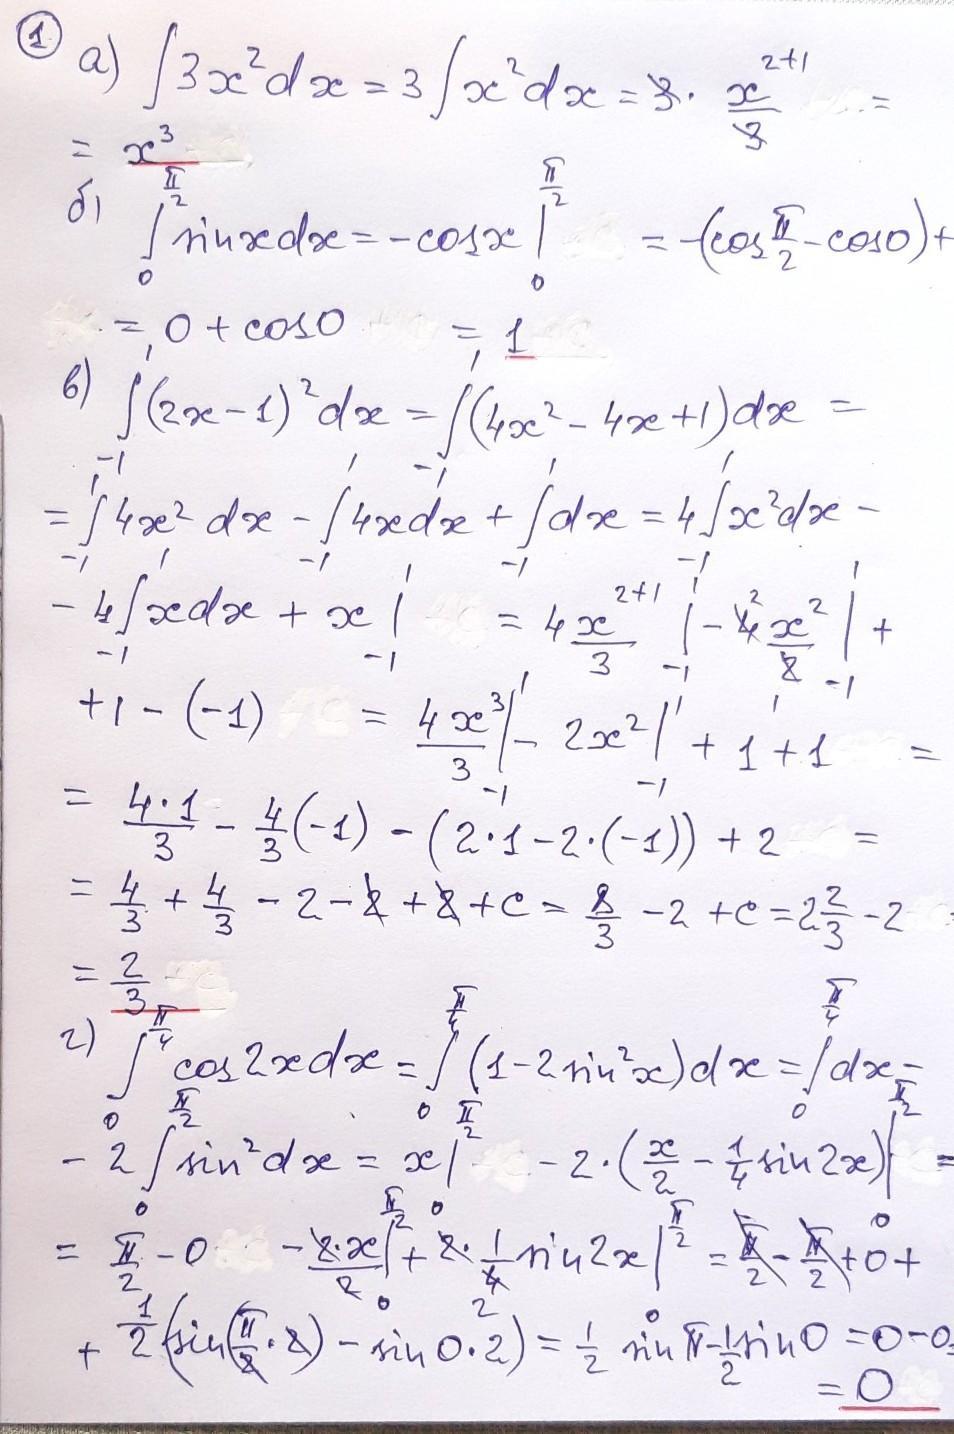 ① а) ∫3x²dx = 3∫x²dx = 3 · x²⁺¹/3 =
= x³
б) ∫₀^(π/2) sinxdx = -cosx |₀^(π/2) = -(cos π/2 - cos0) +
= 0 + cos0 = 1
в) ∫₋₁¹ (2x-1)²dx = ∫₋₁¹ (4x² - 4x+1)dx =
= ∫₋₁¹ 4x² dx - ∫₋₁¹ 4xdx + ∫₋₁¹ dx = 4∫₋₁¹ x²dx -
- 4∫₋₁¹ xdx + x |₋₁¹ = 4 x²⁺¹/3 |₋₁¹ - 4² x²/2 |₋₁¹ +
+1 - (-1) = 4x³/3 |₋₁¹ - 2x² |₋₁¹ + 1 + 1 =
= 4·1/3 - 4/3(-1) - (2·1-2·(-1)) + 2 =
= 4/3 + 4/3 - 2 - 2 + 2 + c = 8/3 - 2 + c = 2 2/3 - 2
= 2/3
г) ∫₀^(π/4) cos2xdx = ∫₀^(π/4) (1-2sin²x)dx = ∫₀^(π/4) dx -
- 2∫₀^(π/2) sin²dx = x |₀^(π/2) - 2·(x/2 - 1/4 sin2x) |₀^(π/2) =
= π/2 - 0 - 2·x/2 |₀^(π/2) + 2· 1/4 2 sin2x |₀^(π/2) = π/2 - π/2 + 0 +
+ 1/2 (sin(π/2 · 2) - sin0·2) = 1/2 sinπ - 1/2 sin0 = 0 - 0 =
= 0